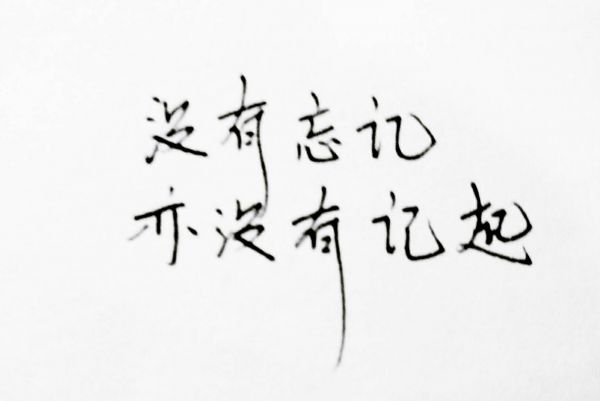 没有忘记
亦没有记起